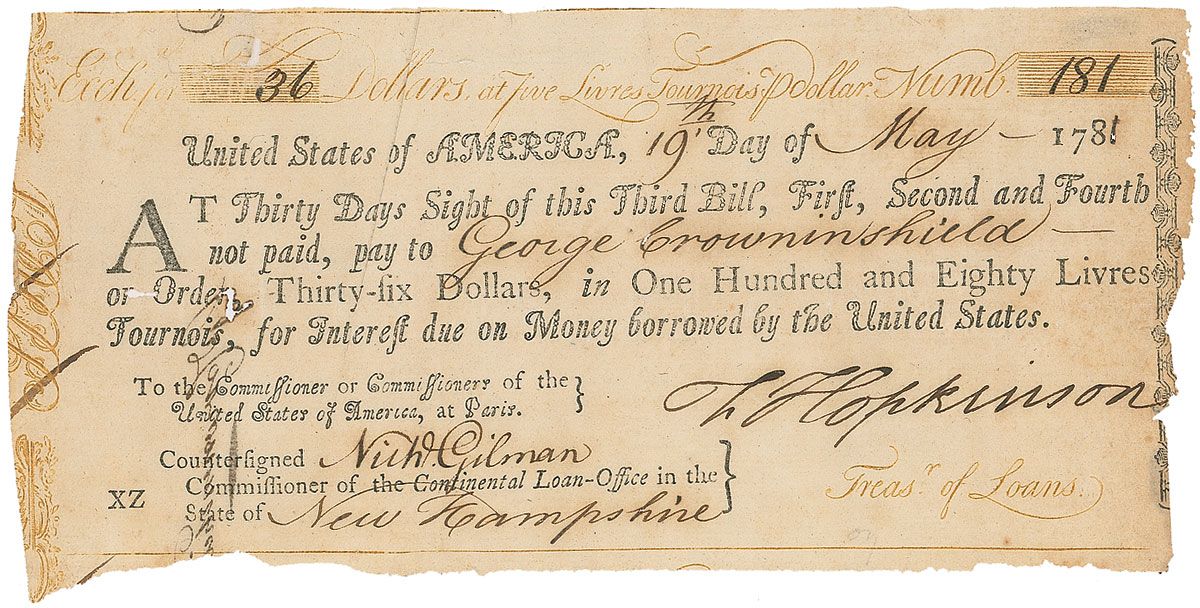 Exch. for 36 Dollars. at five Livres Tournois ⅌ Dollar. Numb. 181
United States of AMERICA, 19th Day of May — 1781
AT Thirty Days Sight of this Third Bill, Firſt, Second and Fourth
not paid, pay to George Crowninshield —
or Order, Thirty-ſix Dollars, in One Hundred and Eighty Livres
Tournois, for Intereſt due on Money borrowed by the United States.
To the Commiſſioner or Commiſſioners of the
United States of America, at Paris.
F Hopkinson
Treasr. of Loans.
Counterſigned Nichs Gilman
Commiſſioner of the Continental Loan-Office in the
State of New Hampshire
XZ